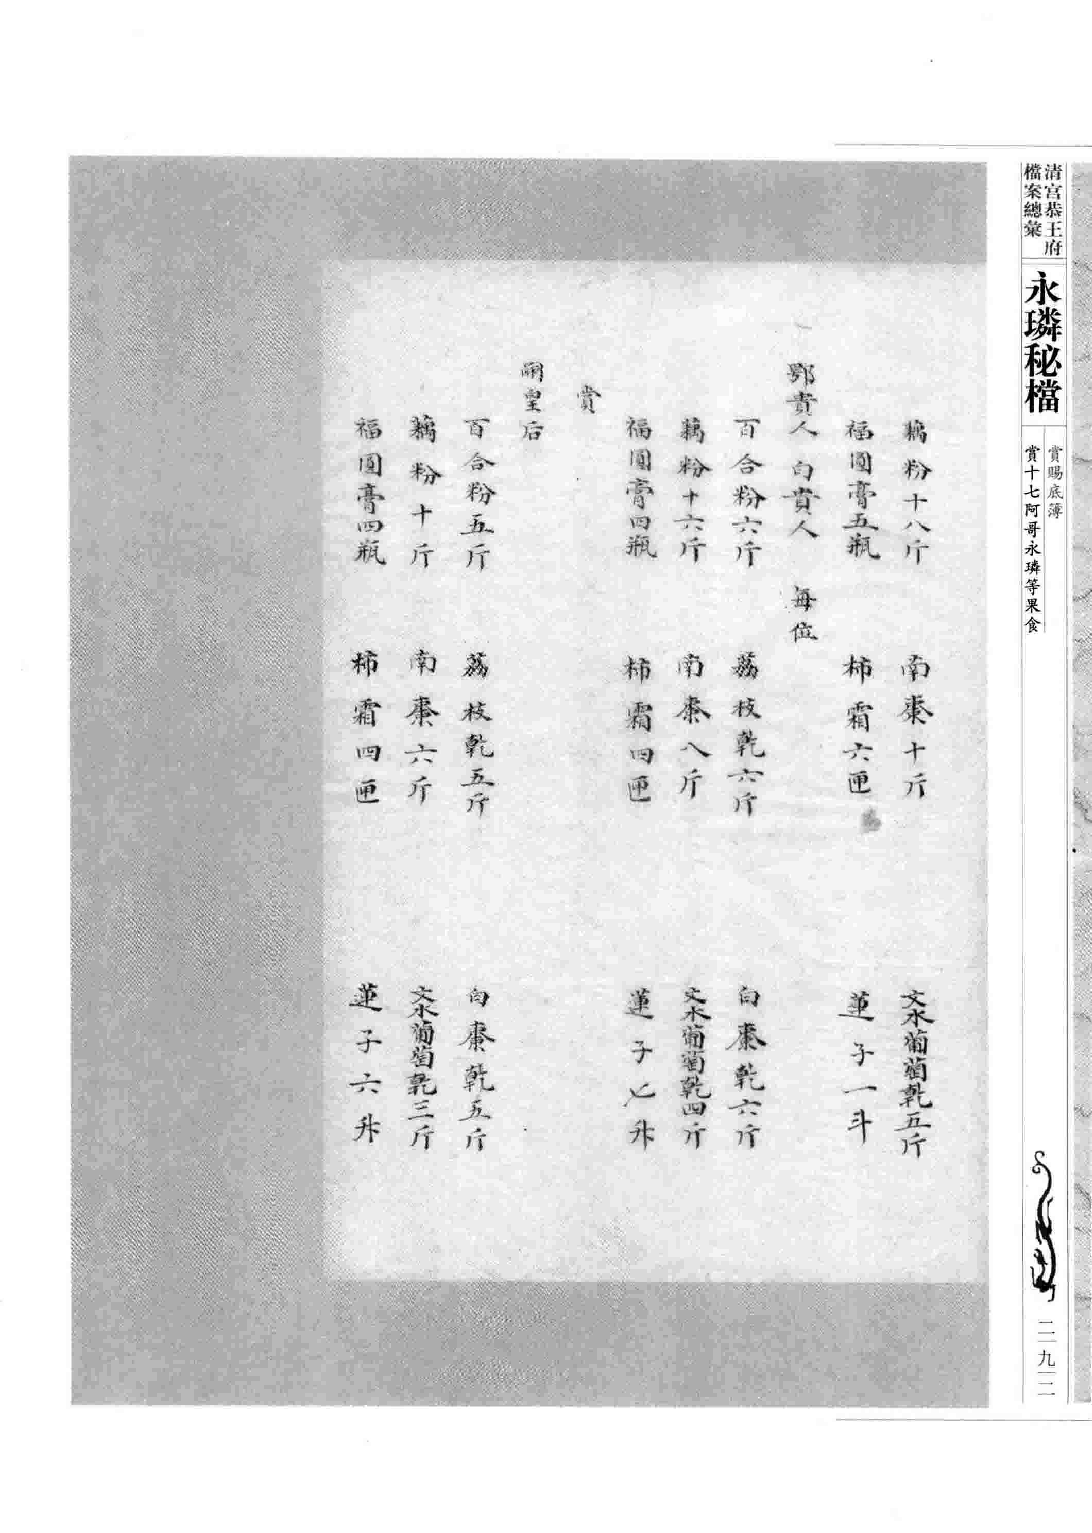 清宮恭王府
檔案總彙
永璘秘檔
賞賜底簿
賞十七阿哥永璘等果食
二九二
藕粉十八斤 南棗十斤 文水葡萄乾五斤
福圓膏五瓶 柿霜六匣 蓮子一斗
鄂貴人 白貴人 每位
百合粉六斤 荔枝乾六斤 白棗乾六斤
藕粉十六斤 南棗八斤 文水葡萄乾四斤
福圓膏四瓶 柿霜四匣 蓮子七升
賞
嗣皇后
百合粉五斤 荔枝乾五斤 白棗乾五斤
藕粉十斤 南棗六斤 文水葡萄乾三斤
福圓膏四瓶 柿霜四匣 蓮子六升